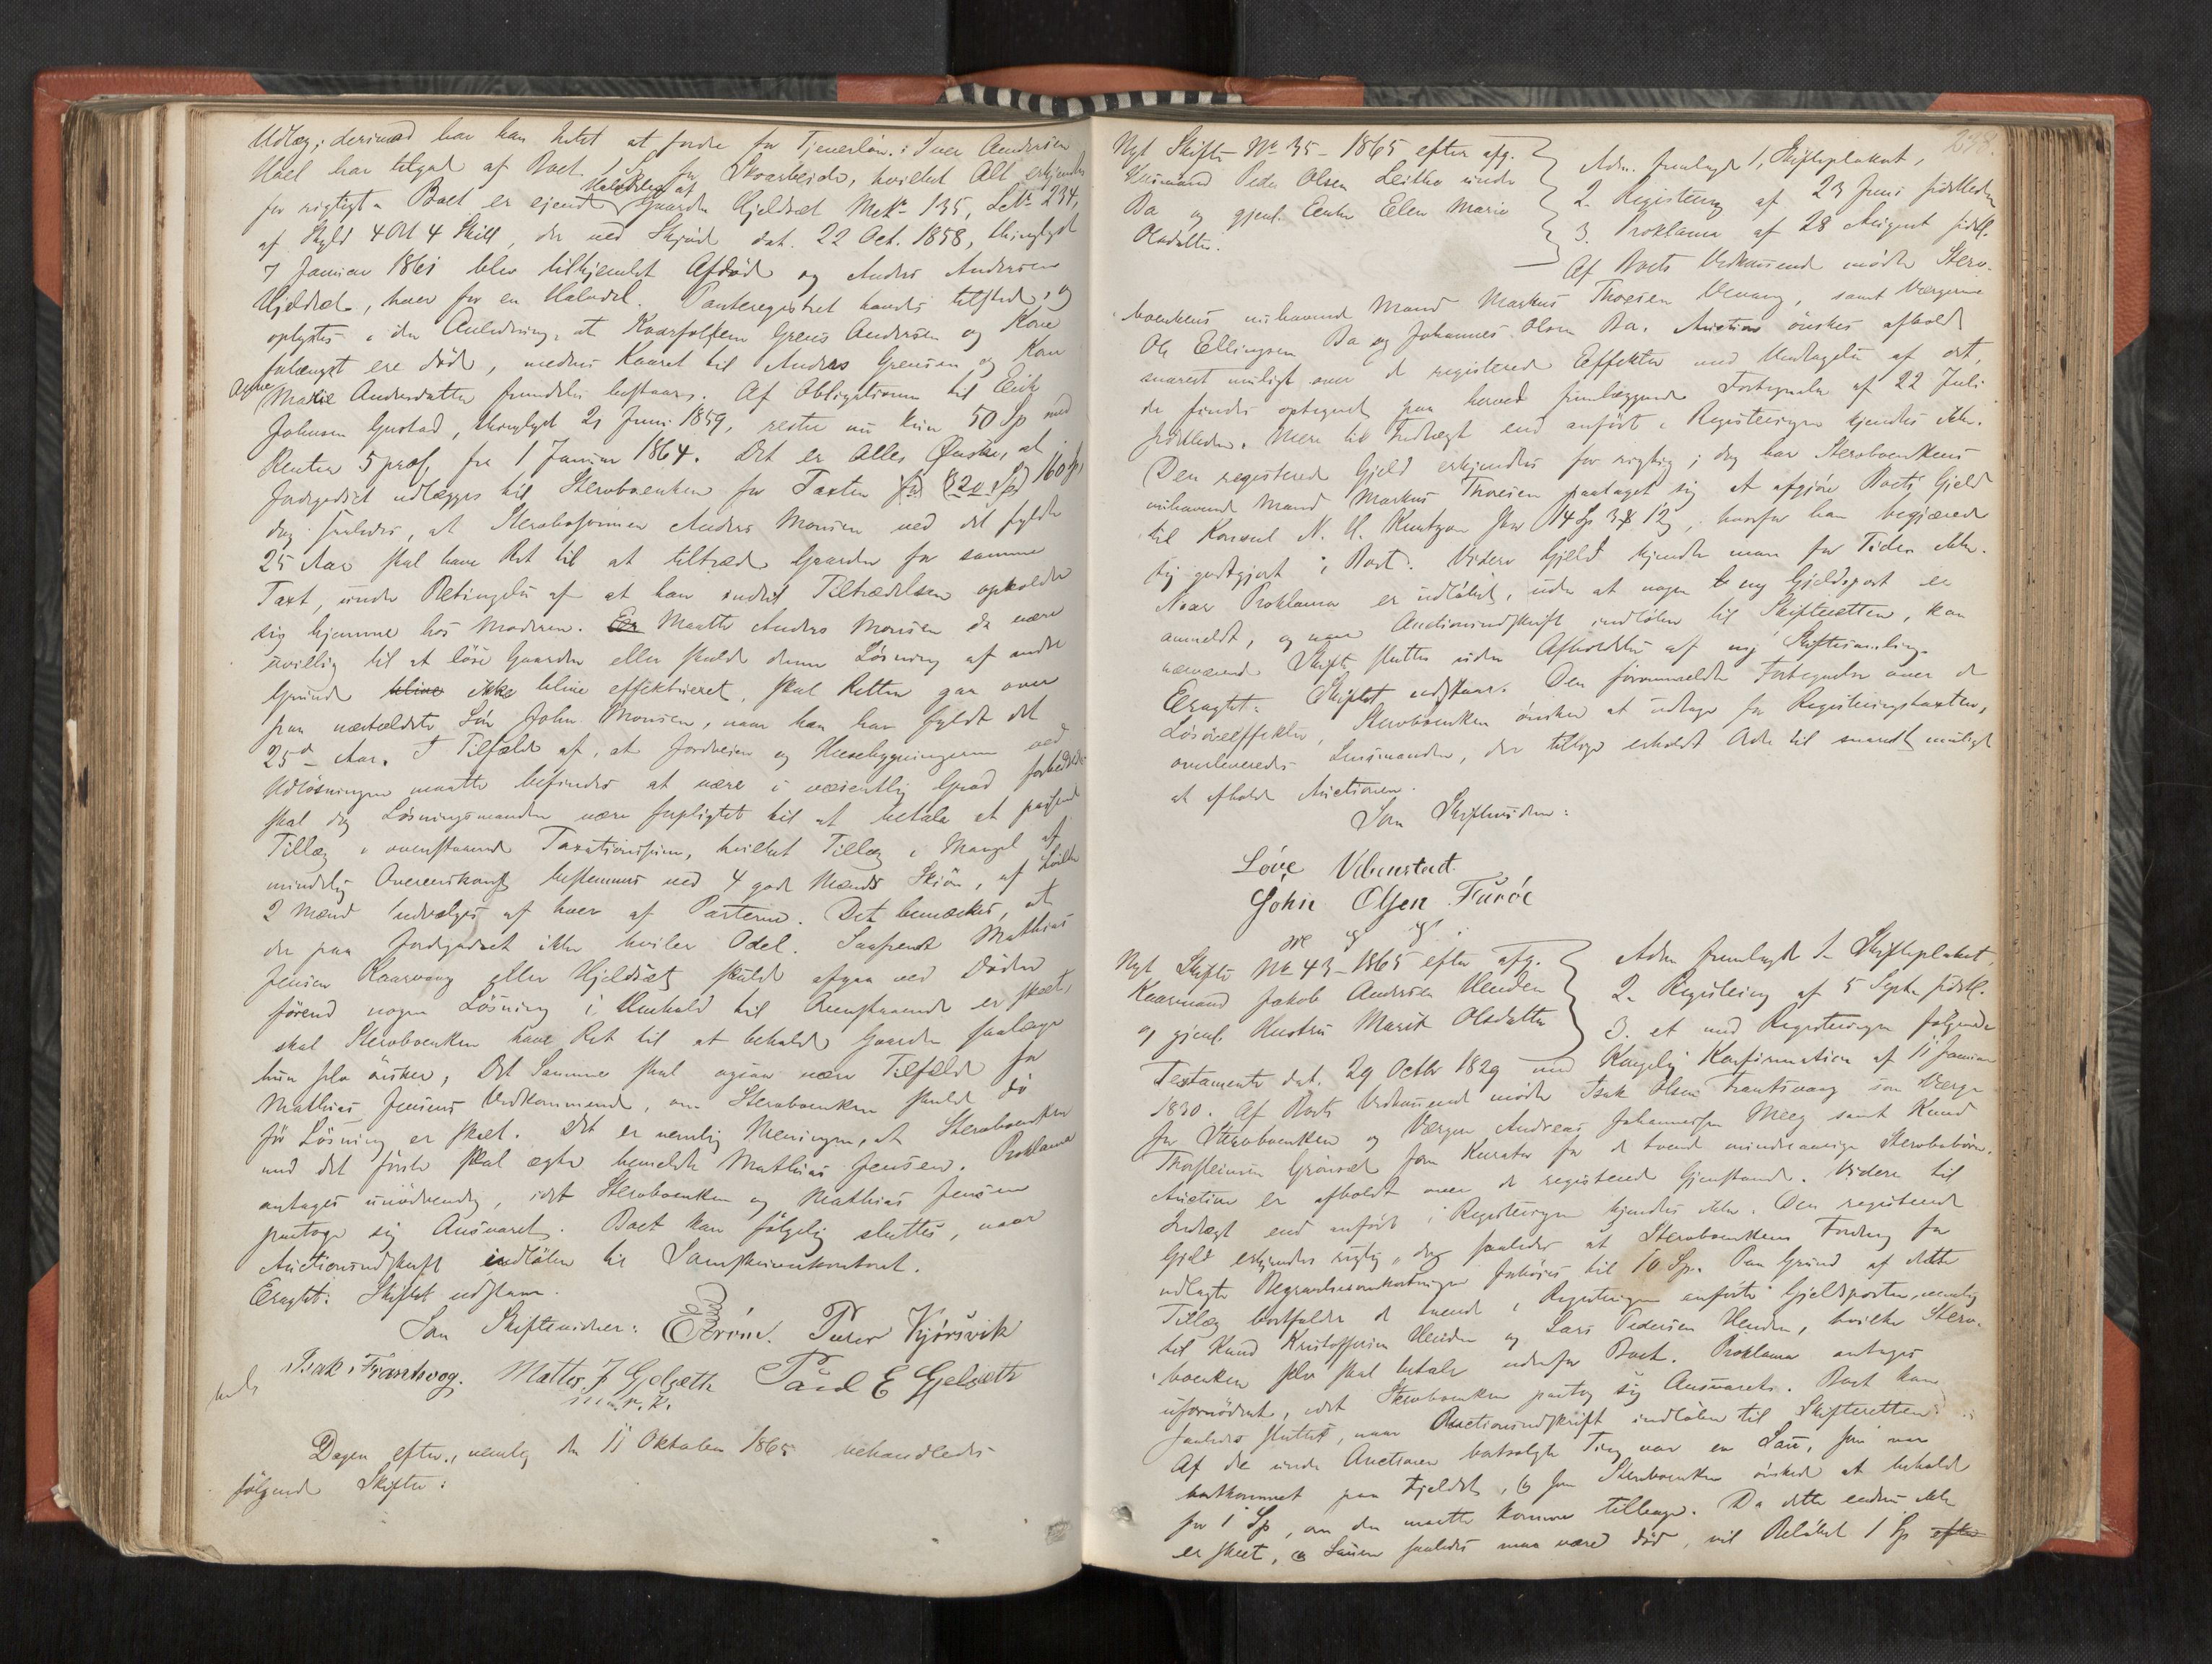 Udlæg; derimod har han Intet at fordre for Tjenerløn. Iver Andersen
Hoel har tilgode af Boet for Skoarbeide, hvilket Alt erkjendes
for rigtigt. Boet er eiende Halvdelen af Gaarden Hjeldsæt Matr 135, Løbr 234,
af Skyld 4 Ort 4 Skill, der ved Skjøde dat. 22 Oct. 1858, thinglyst
7 Januar 1861 blev tilhjemlet Afdøde og Anders Andersen
Hjeldsæt, hver for en Halvdel. Panteregistret havdes tilstede, og
oplystes i den Anledning, at Kaarfolkene Greus Andersen og Kone
forlængst ere døde, medens Kaaret til Anders Greusen og Kone
Anne Marie Andersdatter fremdeles bestaar. Af Obligationen til Erik
Johnsen Gustad, thinglyst 21 Juni 1859, rester nu kun 50 Sp med
Renter 5 proC. fra 1 Januar 1864. Det er Alles Ønske, at
Jordgodset udlægges til Stervboenken for Taxten 160 Sp,
dog saaledes, at Stervbosønnen Anders Monsen ved det fyldte
25 Aar skal have Ret til at tiltræde Gaarden for samme
Taxt, under Betingelse af at han indtil Tiltrædelsen opholder
sig hjemme hos Moderen. Maatte Anders Monsen da være
uvillig til at løse Gaarden eller skulde denne Løsning af andre
Grunde blive ikke blive effektueret, skal Retten gaa over
paa næstældste Søn John Monsen, naar han har fyldt det
25d Aar. I Tilfælde af, at Jordveien og Husebygningerne ved
Udløsningen maatte befindes at være i væsentlig Grad forbedrede
skal dog Løsningsmanden være forpligtet til at betale et passende
Tillæg i ovenstaaende Taxationssum, hvilket Tillæg i Mangel af
mindelig Overenskomst bestemmes ved 4 gode Mænds Skjøn, af hvilke
2 Mænd udvælges af hver af Parterne. Det bemærkes, at
der paa Jordgodset ikke hviler Odel. Saafremt Mathias
Jensen Kaarvaag eller Hjeldsæt skulde afgaa ved Døden
førend nogen Løsning i Henhold til Ovenstaaende er skeet,
skal Stervboenken have Ret til at beholde Gaarden saalænge
hun selv ønsker; Det Samme skal ogsaa være Tilfælde for
Mathias Jensens Vedkommende, om Stervboenken skulde dø
før Løsning er skeet. Det er nemlig Meningen, at Stervboenken
med det første skal ægte bemeldte Mathias Jensen. Proklama
antages unødvendig, idet Stervboenken og Mathias Jensen
paatoge sig Ansvaret. Boet kan følgelig sluttes, naar
Auctionsudskrift indløber til Sorenskriverkontoret.
Eragtet: Skiftet udstaar.
Som Skiftevidner: Peter Kjørsvik
Isak Frantsvog. Mattis J Gjelseth Paul E Gjelseth
m. p. k.
Dagen efter, nemlig den 11 Oktober 1865 behandledes
følgende Skifter:
238.
Nyt Skifte No 35 - 1865 efter afg.
Husmand Peder Olsen Leithe under
Bø og gjenl. Enke Elen Marie
Olsdatter.
Adm. fremlagde 1, Skifteplakat,
2. Registering af 23 Juni sidstleden
3. Proklama af 28 August sidstl.
Af Boets Vedkommende mødte Sterv-
boenkens nuhavende Mand Markus Thoresen Vevang, samt Værgerne
Ole Ellingsen Bø og Johannes Olsen Bø. Auction ønskes afholdt
snarest muligt over de registerede Effekter med Undtagelse af det,
der findes optegnet paa herved fremlæggende Fortegnelse af 22 Juli
sidstleden. Mere til Indtægt end anført i Registeringen kjendtes ikke.
Den registerede Gjeld erkjendtes for rigtig; dog har Stervboenkens
nuhavende Mand Markus Thoresen paataget sig at afgjøre Boets Gjeld
til Konsul N. H. Knutzon stor 14 Sp 3 # 12 s, hvorfor han begjærede
sig godtgjort i Boet. Videre Gjeld kjendte man for Tiden ikke.
Naar Proklama er udløbet, uden at nogen ny Gjeldspost er
anmeldt, og naar Auctionsudskrift indløber til Skifteretten, kan
nærværende Skifte sluttes uden Afholdelse af ny Skiftesamling.
Eragtet: Skiftet udstaar. Den førommeldte Fortegnelse over de
Løsøreeffekter, Stervboenken ønsker at udtage for Registeringstaxten,
overleveredes Lensmanden, der tillige erholdt Ordre til snarest muligt
at afholde Auctionen.
Som Skiftevidner:
Løve Vebenstad
John Olsen Furøe
m p k
Nyt Skifte No 43 - 1865 efter afg.
Kaarmand Jakob Andersen Henden
og gjenl. Hustru Marit Olsdatter
Adm fremlagde 1. Skifteplakat,
2. Registering af 5 Septr sidstl.
3. et med Registeringen følgende
Testamente dat. 29 Octbr 1829 med Kongelig Konfirmation af 11 Januar
1830. Af Boets Vedkommende mødte Isak Olsen Frantsvaag som Værge
for Stervboenken og Værgen Andreas Johannessen Meeg samt Knud
Thorsteinsen Grønset som Kurator for de tvende mindreaarige Stervbobørn.
Auction er afholdt over de registerede Gjenstande. Videre til
Indtægt end anført i Registeringen kjendtes ikke. Den registerede
Gjeld erkjendtes rigtig, dog saaledes at Stervboenkens Fordring for
udlagte Begravelsesomkostninger forhøies til 10 Sp. Paa Grund af dette
Tillæg bortfalder de tvende i Registeringen anførte Gjeldsposter, nemlig
til Knud Kristoffersen Henden og Lars Pedersen Henden, hvilke Sterv-
boenken selv skal betale udenfor Boet. Proklama antages
ufornødent, idet Stervboenken paatog sig Ansvaret. Boet kan
saaledes sluttes, naar Auctionsudskrift indløber til Skifteretten.
Af de under Auctionen bortsolgte Ting var en Sau, som var
bortkommet paa Fjeldet, og som Stervboenken ønskede at beholde
for 1 Sp, om den maatte komme tilbage. Da dette endnu ikke
er skeet, og Sauen saaledes maa være død, vil Beløbet 1 Sp efter